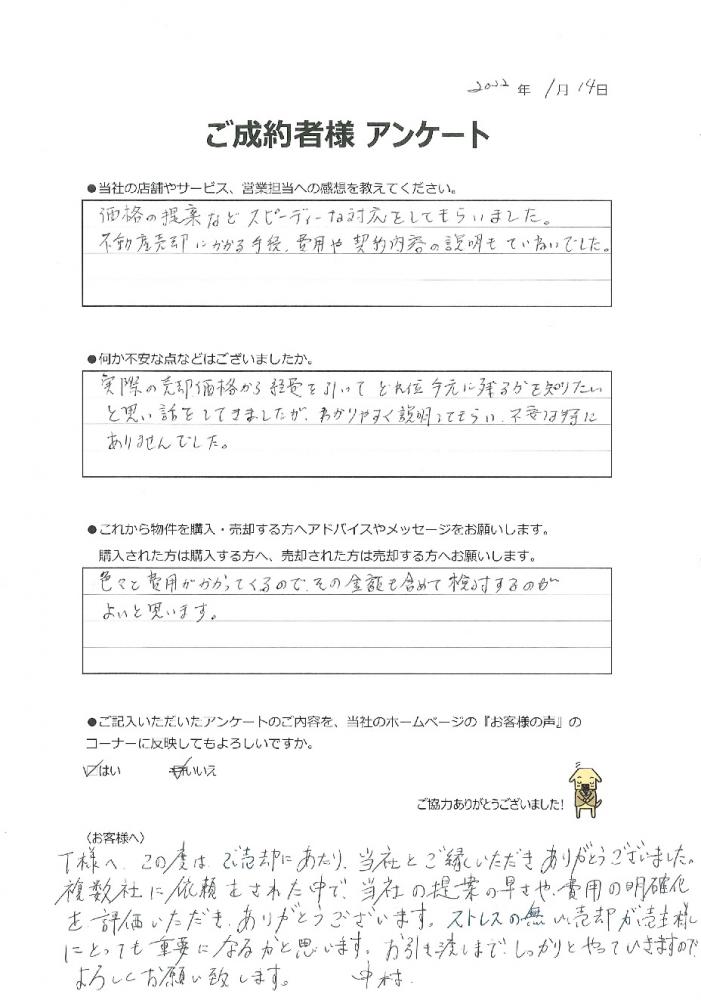 2022年 1月 14日
ご成約者様 アンケート
●当社の店舗やサービス、営業担当への感想を教えてください。
価格の提案など スピーディーな対応をしてもらいました。
不動産売却にかかる手続、費用や契約内容の説明もていねいでした。
●何か不安な点などはございましたか。
実際の売却価格から経費を引いて どれ位手元に残るかを知りたい
と思い話をしてきましたが、わかりやすく説明してもらい、不安は特に
ありませんでした。
●これから物件を購入・売却する方へアドバイスやメッセージをお願いします。
購入された方は購入する方へ、売却された方は売却する方へお願いします。
色々と費用がかかってくるので、その金額も含めて検討するのが
よいと思います。
●ご記入いただいたアンケートのご内容を、当社のホームページの『お客様の声』の
コーナーに反映してもよろしいですか。
はい いいえ
ご協力ありがとうございました!
〈お客様へ〉
T様へ この度は、ご売却にあたり、当社とご縁いただきありがとうございました。
複数社に依頼をされた中で、当社の提案の早さや、費用の明確化
を評価いただき、ありがとうございます。ストレスの無い売却が売主様
にとっても重要になるかと思います。お引き渡しまで、しっかりとやっていきますので
よろしくお願い致します。 中村